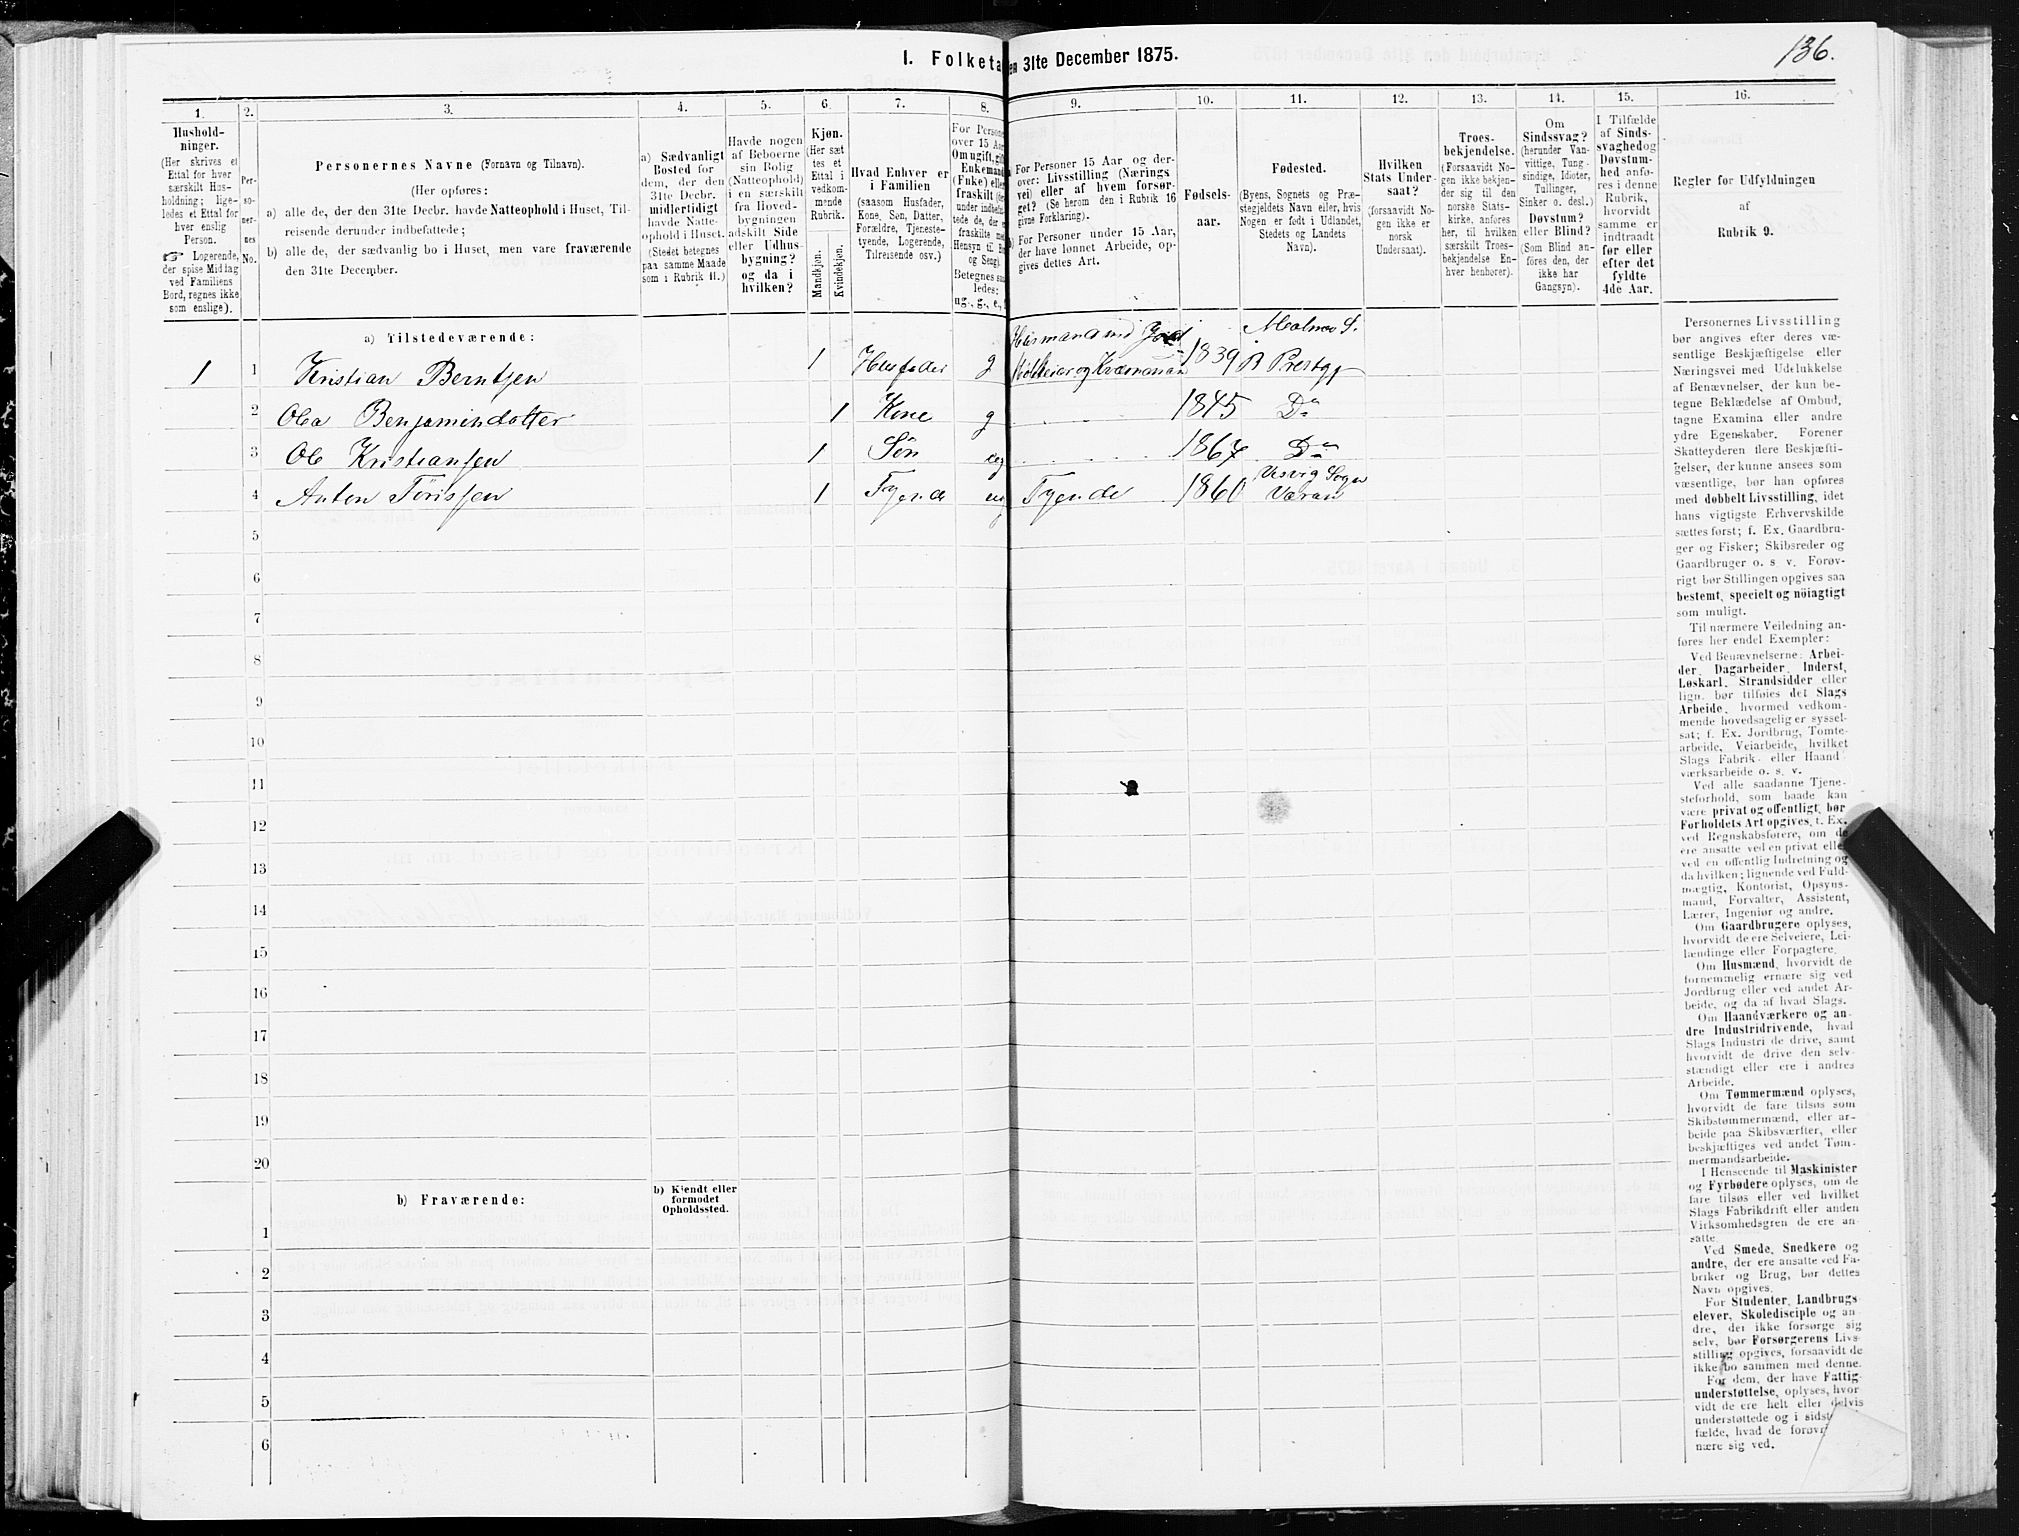 136.
I. Folketa
en 31te December 1875.
1.
Hushold-
ninger.
(Her skrives et
Ettal for hver
særskilt Hus-
holdning; lige-
ledes et Ettal for
hver enslig
Person.
☞ Logerende,
der spise Middag
ved Familiens
Bord, regnes ikke
som enslige).
2.
Per-
so-
ner-
nes
No.
3.
Personernes Navne (Fornavn og Tilnavn).
(Her opføres:
a) alle de, der den 31te Decbr. havde Natteophold i Huset, Til-
reisende derunder indbefattede;
b) alle de, der sædvanlig bo i Huset, men vare fraværende
den 31te December.
4.
a) Sædvanligt
Bosted for
dem, der den
31te Decbr.
midlertidigt
havde Natte-
ophold i Huset.
(Stedet betegnes
paa samme Maade
som i Rubrik 11.)
5.
Havde nogen
af Beboerne
sin Bolig
(Natteophold)
i en særskilt
fra Hoved-
bygningen
adskilt Side
eller Udhus-
bygning?
og da i
hvilken?
6.
Kjøn.
(Her sæt
tes et
Ettal i
vedkom-
mende
Rubrik.
Mandkjøn.
Kvindekjøn.
7.
Hvad Enhver er
i Familien
(saasom Husfader,
Kone, Søn, Datter,
Forældre, Tjeneste-
tyende, Logerende,
Tilreisende osv.)
8.
For Persone
over 15 Aar
Om ugift, gift
Enkemand
(Fuke) eller
fraskilt (er
under indbefat-
tede de, der e
fraskilte med
Hensyn til Bo
og Seng).
Betegnes saa
ledes:
ug., g., e.,
9.
For Personer 15 Aar og der-
over: Livsstilling (Nærings
vei) eller af hvem forsør-
get? (Se herom den i Rubrik 16
givne Forklaring).
b) For Personer under 15 Aar,
der have lønnet Arbeide, op-
gives dettes Art.
10.
Fødsels-
aar.
11.
Fødested.
(Byens, Sognets og Præ-
stegjeldets Navn eller, hvis
Nogen er født i Udlandet,
Stedets og Landets
Navn).
12.
Hvilken
Stats Under-
saat?
(forsaavidt No-
gen ikke er
norsk
Undersaat).
13.
Troes-
bekjendelse.
(Forsaavidt No-
gen ikke bekjen-
der sig til den
norske Stats-
kirke, anføres
her, til hvilken
særskilt Troes-
bekjendelse En-
hver henhører).
14.
Om
Sindssvag?
(herunder Van-
vittige, Tung-
sindige, Idioter,
Tullinger,
Sinker o. desl.)
Døvstum?
eller Blind?
(Som Blind an-
føres den, der
ikke har
Gangsyn).
15.
I Tilfælde
af Sinds-
svaghed og
Døvstum-
hed anfø-
res i denne
Rubrik,
hvorvidt
samme er
indtraadt
før eller
efter det
fyldte
4de Aar.
16.
Regler for Udfyldningen
af
Rubrik 9.
a) Tilstedeværende:
1 1 Kristian Berntsen 1 Husfader g Husmand md Jord 1839 Prestgj
2 Benjaminsdatter 1 Kone g 1845 Do
3 Ole Kristiansen 1 Søn ug 1867 Do
4 Anton Tørissen 1 Tyende ug Tyende 1860 Sogn
5
6
7
8
9
10
11
12
13
14
15
16
17
18
19
20
b) Fraværende:
b) Kjendt eller
formodet
Opholdssted.
1
2
3
4
5
6
Personernes Livsstilling
bør angives efter deres væ-
sentlige Beskjæftigelse eller
Næringsvei med Udelukkelse
af Benævnelser, der kun be-
tegne Beklædelse af Ombud,
tagne Examina eller andre
ydre Egenskaber. Forener
Skatteyderen flere Beskjæfti-
gelser, der kunne ansees som
væsentlige, bør han opføres
med dobbelt Livsstilling, idet
hans vigtigste Erhvervskilde
sættes først; f. Ex. Gaardbru-
ger og Fisker; Skibsreder og
Gaardbruger o. s. v. Forøv-
rigt bør Stillingen opgives saa
bestemt, specielt og nöiagtigt
som muligt.
Til nærmere Veiledning an-
føres her endel Exempler:
Ved Benævnelserne: Arbei-
der, Dagarbeider, Inderst,
Løskarl, Strandsidder eller
lign. bør tilføies det Slags
Arbeide, hvormed vedkom-
mende hovedsagelig er syssel-
sat; f. Ex. Jordbrug, Tomte-
arbeide, Veiarbeide, hvilket
Slags Fabrik- eller Haand
værksarbeide o. s. v.
Ved alle saadanne Tjene-
steforhold, som baade kan
være privat og offentligt, bør
Forholdets Art opgives, t. Ex.
ved Regnskabsførere, om de
ere ansatte ved en privat elle
ved en offentlig Indretning og
da hvilken; lignende ved Fuld-
mægtig, Kontorist, Opsyns-
mand, Forvalter, Assistent,
Lærer, Ingeniør og andre.
Om Gaardbrugere oplyses,
hvorvidt de ere Selveiere, Lei-
lændinge eller Forpagtere.
Om Husmænd, hvorvidt de
fornemmelig ernære sig ved
Jordbrug eller ved andet Ar-
beide, og da af hvad Slags.
Om Haandværkere og an-
dre Industridrivende, hvad
Slags Industri de drive, samt
hvorvidt de drive den selv-
stændigt eller ere i andres
Arbeide.
Om Tømmermænd oplyses,
hvorvidt de fare tilsøs som
Skibstømmermænd, eller ar-
beide paa Skibsværfter, eller
beskjæftiges ved andet Tøm-
mermandsarbeide.
I Henseende til Maskinister
og Fyrbødere oplyses, om de
fare tilsøs eller ved hvilket
Slags Fabrikdrift eller anden
Virksomhedsgren de ere an-
satte.
Ved Smede, Snedkere og
andre, der ere ansatte ved Fa-
briker og Brug, bør dettes
Navn opgives.
For Studenter, Landbrugs
elever, Skoledisciple og an-
dre, der ikke forsørge sig
selv, bør Forsørgerens Livs-
stilling opgives, forsaavidt de
ikke bo sammen med denne.
For dem, der have Fattig-
understøttelse, oplyses, hvor
vidt de ere helt eller delvis
understøttede og i sidst
fælde, hvad de forøvr
nære sig ved.